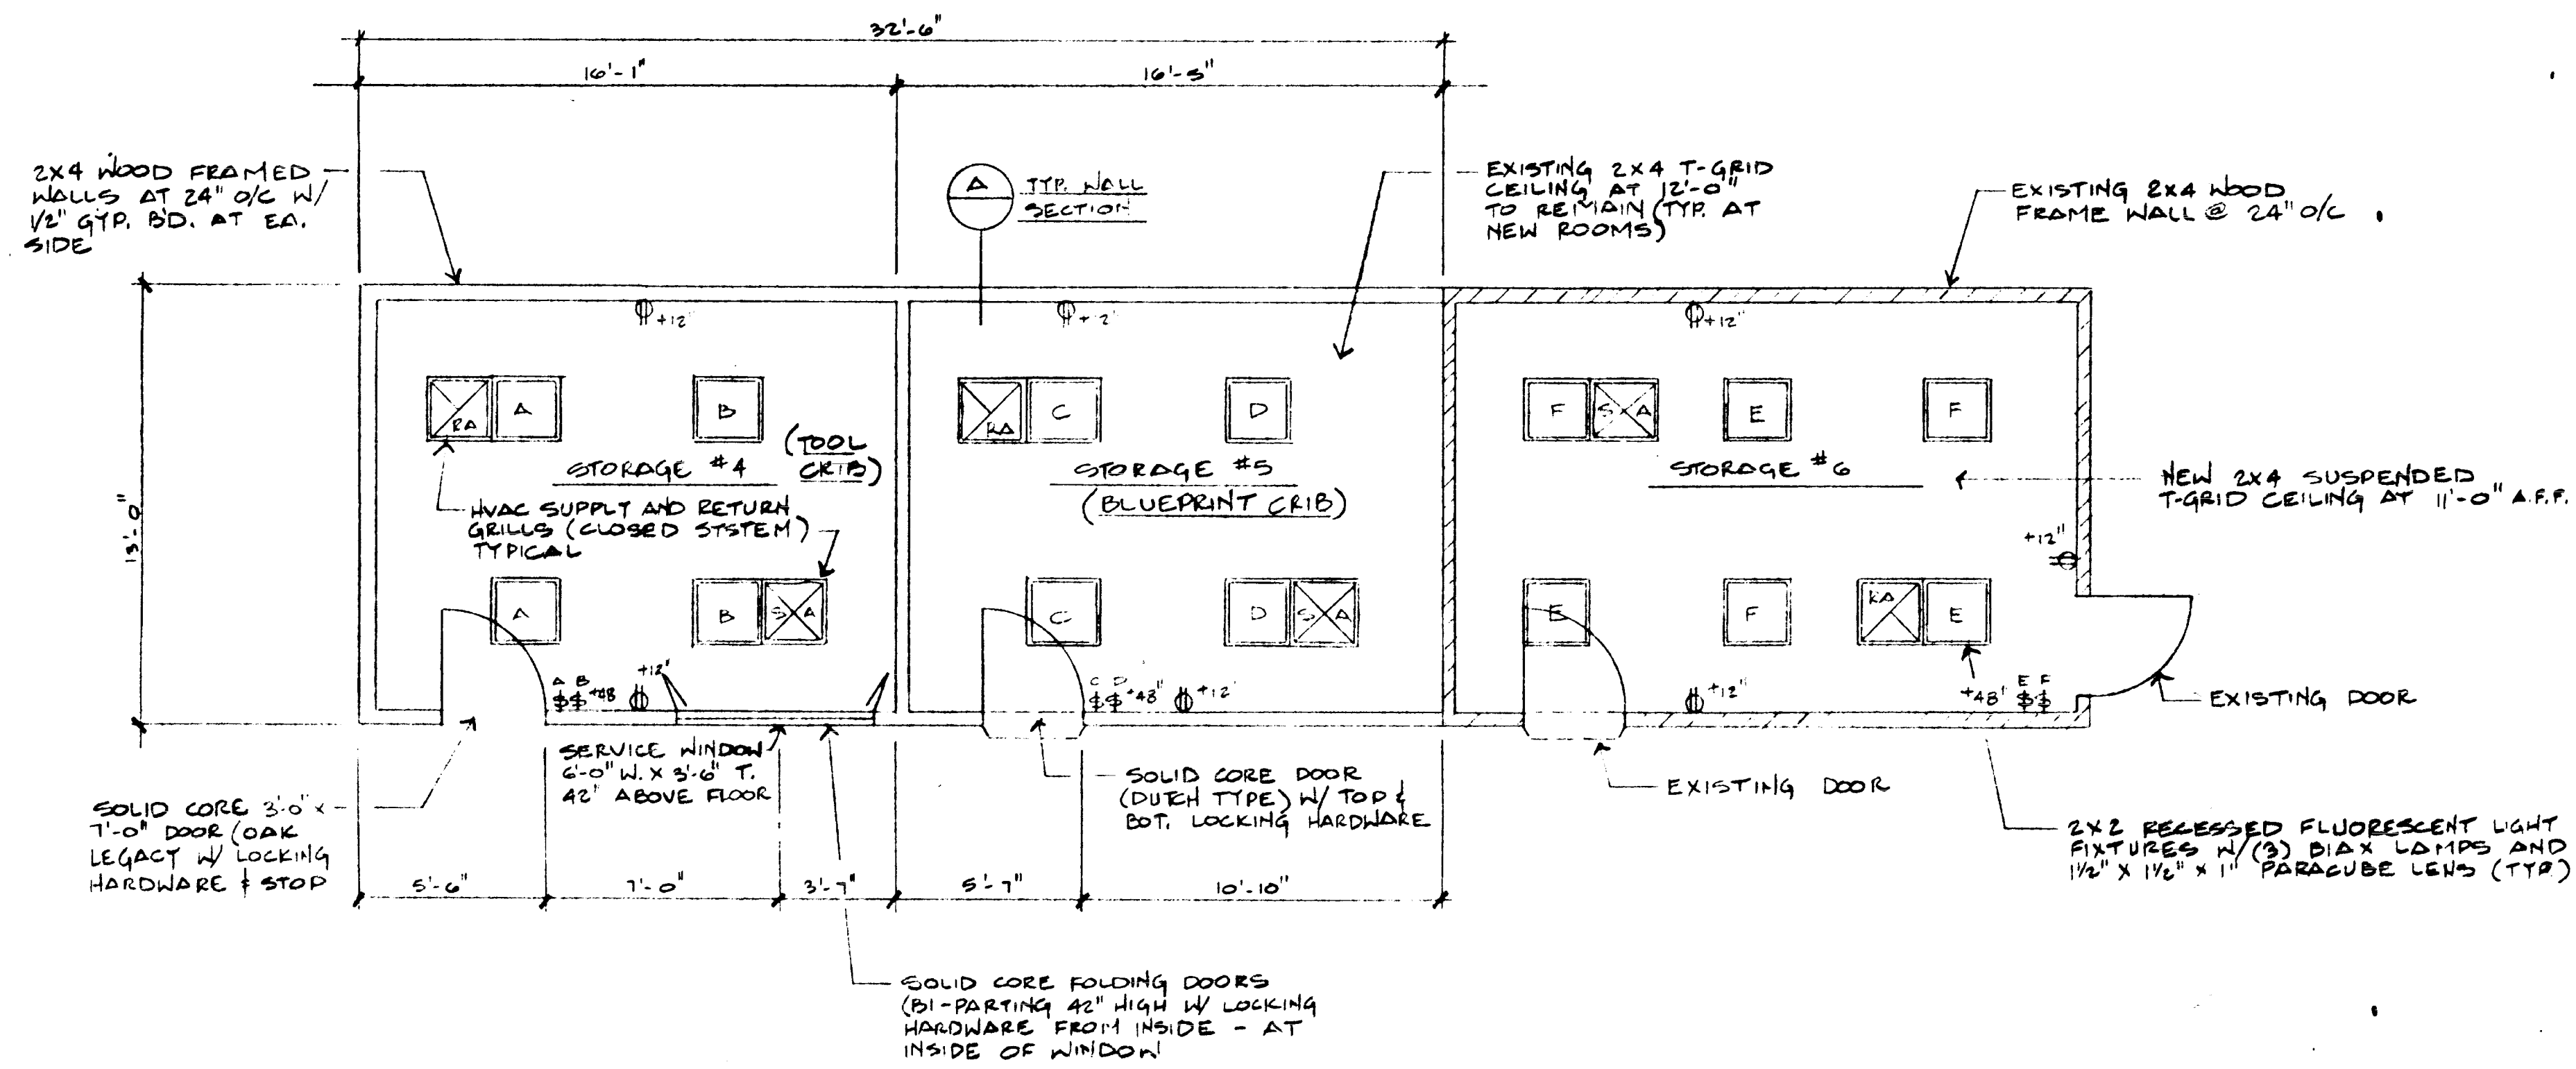 32'-6"
16'-1"
16'-5"
2X4 WOOD FRAMED
WALLS AT 24" O/C W/
1/2" GYP. B'D. AT EA.
SIDE
A
TYP. WALL
SECTION
EXISTING 2X4 T-GRID
CEILING AT 12'-0"
TO REMAIN (TYP. AT
NEW ROOMS)
EXISTING 2X4 WOOD
FRAME WALL @ 24" O/C
13'-0"
+12"
+12'
+12"
RA
A
B
RA
C
D
F
S A
E
F
STORAGE #4
(TOOL
CRIB)
STORAGE #5
(BLUEPRINT CRIB)
STORAGE #6
HVAC SUPPLY AND RETURN
GRILLS (CLOSED SYSTEM)
TYPICAL
NEW 2X4 SUSPENDED
T-GRID CEILING AT 11'-0" A.F.F.
+12"
A
B
S A
C
D
S A
E
F
RA
E
A B
$$ +48
+12'
C D
$$ +48"
+12'
+12"
+48'
E F
$$
EXISTING DOOR
SERVICE WINDOW
6'-0" W. X 3'-6" T.
42" ABOVE FLOOR
SOLID CORE 3'-0" x
7'-0" DOOR (OAK
LEGACY W/ LOCKING
HARDWARE & STOP
SOLID CORE DOOR
(DUTCH TYPE) W/ TOP &
BOT. LOCKING HARDWARE
EXISTING DOOR
2X2 RECESSED FLUORESCENT LIGHT
FIXTURES W/ (3) BIAX LAMPS AND
1 1/2" X 1 1/2" X 1" PARACUBE LENS (TYP.)
5'-6"
7'-0"
3'-7"
5'-7"
10'-10"
SOLID CORE FOLDING DOORS
(BI-PARTING 42" HIGH W/ LOCKING
HARDWARE FROM INSIDE - AT
INSIDE OF WINDOW